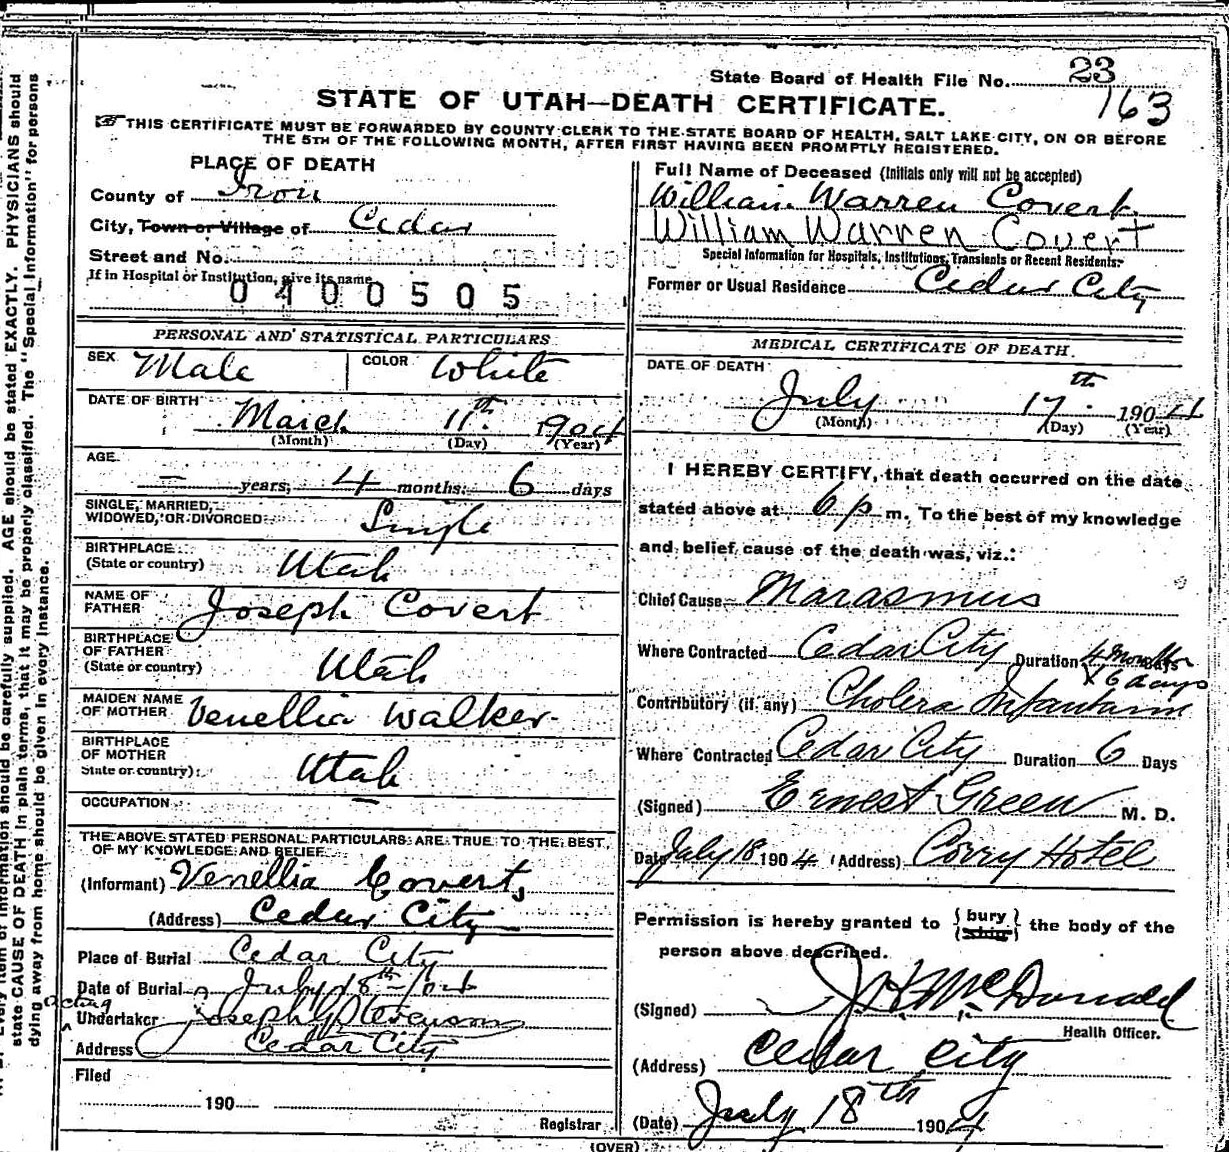 State Board of Health File No. 23
163
STATE OF UTAH—DEATH CERTIFICATE.
THIS CERTIFICATE MUST BE FORWARDED BY COUNTY CLERK TO THE STATE BOARD OF HEALTH, SALT LAKE CITY, ON OR BEFORE
THE 5TH OF THE FOLLOWING MONTH, AFTER FIRST HAVING BEEN PROMPTLY REGISTERED.
PLACE OF DEATH
County of Iron
City, Town or Village of Cedar
Street and No.
If in Hospital or Institution, give its name
0400505
PERSONAL AND STATISTICAL PARTICULARS
SEX Male COLOR White
DATE OF BIRTH March 11th 1904
(Month) (Day) (Year)
AGE
— years, 4 months, 6 days
SINGLE, MARRIED,
WIDOWED, OR DIVORCED Single
BIRTHPLACE
(State or country) Utah
NAME OF
FATHER Joseph Covert
BIRTHPLACE
OF FATHER
(State or country) Utah
MAIDEN NAME
OF MOTHER Venellia Walker
BIRTHPLACE
OF MOTHER
State or country) Utah
OCCUPATION —
THE ABOVE STATED PERSONAL PARTICULARS ARE TRUE TO THE BEST
OF MY KNOWLEDGE AND BELIEF
(Informant) Venellia Covert,
(Address) Cedar City
Place of Burial Cedar City
Date of Burial July 18th
acting
Undertaker Joseph
Address Cedar City
Filed
190
Registrar
Full Name of Deceased (Initials only will not be accepted)
William Warren Covert
William Warren Covert
Special Information for Hospitals, Institutions, Transients or Recent Residents:
Former or Usual Residence Cedar City
MEDICAL CERTIFICATE OF DEATH.
DATE OF DEATH
July 17th 1904
(Month) (Day) (Year)
I HEREBY CERTIFY, that death occurred on the date
stated above at 6 p m. To the best of my knowledge
and belief, cause of the death was, viz.:
Chief Cause Marasmus
Where Contracted Cedar City Duration 4 Months Days
6 days
Contributory (if any) Cholera Infantum
Where Contracted Cedar City Duration 6 Days
(Signed) Ernest Green M. D.
Date July 18 1904 (Address) Corry Hotel
Permission is hereby granted to {bury ship} the body of the
person above described.
(Signed) McDonald
Health Officer.
(Address) Cedar City
(Date) July 18th 1904
(OVER)
Every item of information should be carefully supplied. AGE should be stated EXACTLY. PHYSICIANS should
state CAUSE OF DEATH in plain terms, that it may be properly classified. The "Special Information" for persons
dying away from home should be given in every instance.